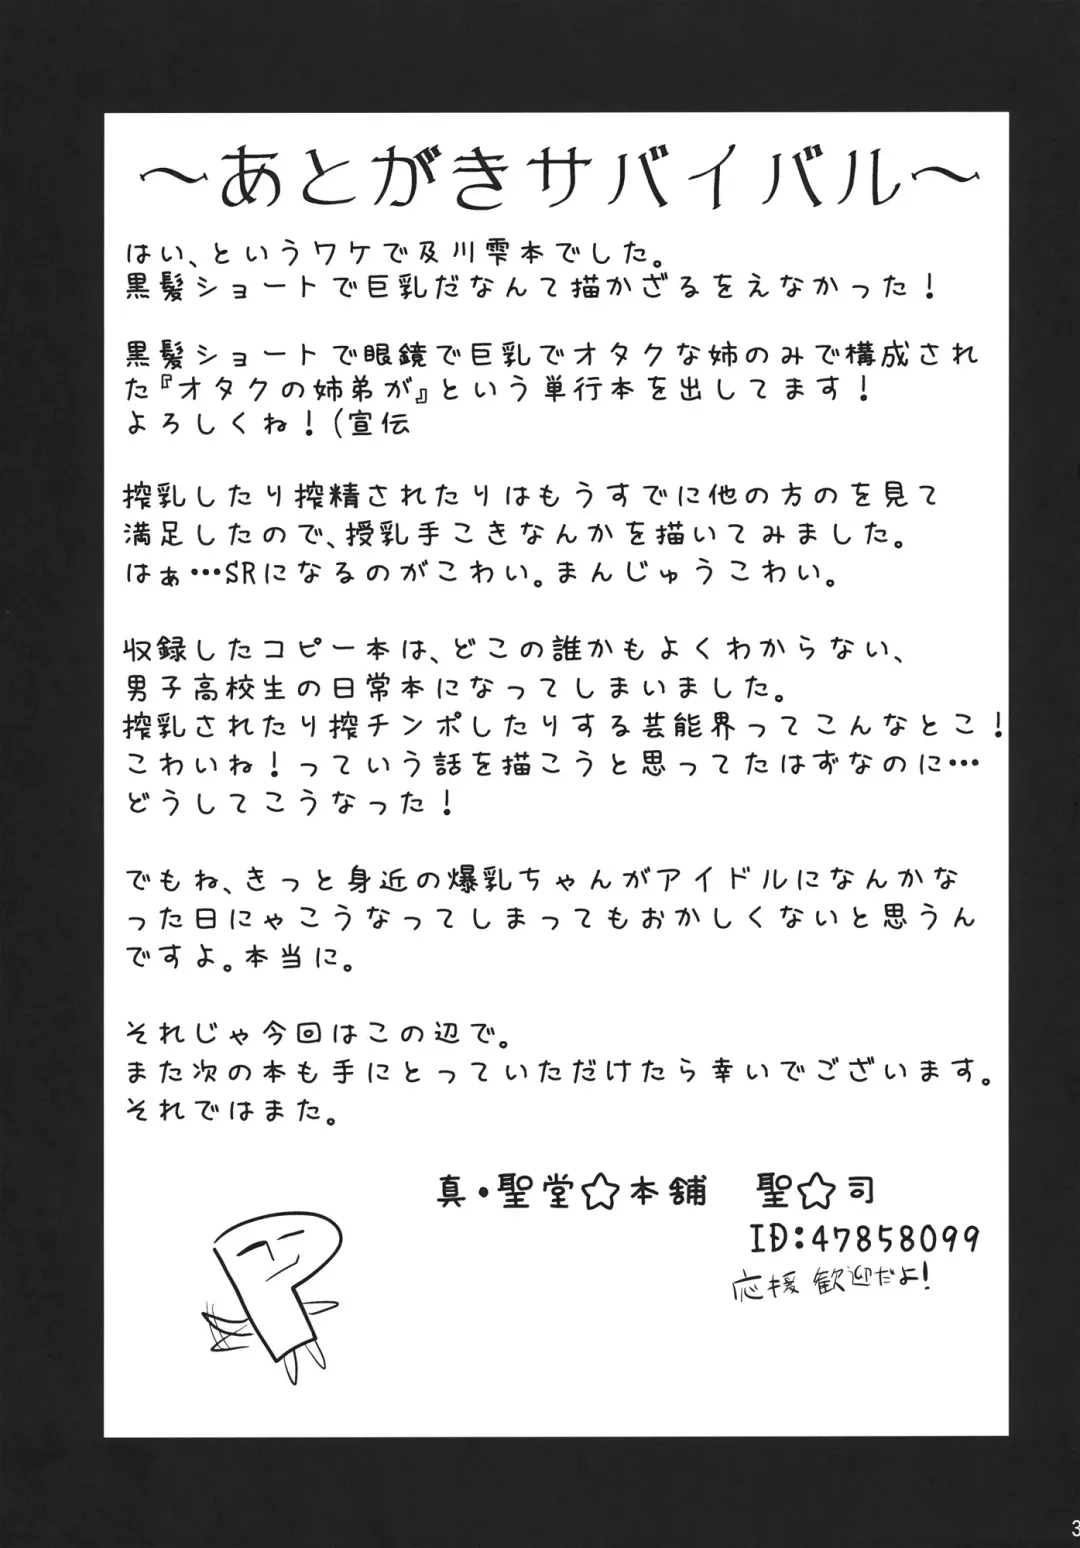 ～あとがきサバイバル～
はい、というワケで及川雫本でした。
黒髪ショートで巨乳だなんて描かざるをえなかった！
黒髪ショートで眼鏡で巨乳でオタクな姉のみで構成され
た『オタクの姉弟が』という単行本を出してます！
よろしくね！(宣伝
搾乳したり搾精されたりはもうすでに他の方のを見て
満足したので、授乳手こきなんかを描いてみました。
はぁ…SRになるのがこわい。まんじゅうこわい。
収録したコピー本は、どこの誰かもよくわからない、
男子高校生の日常本になってしまいました。
搾乳されたり搾チンポしたりする芸能界ってこんなとこ！
こわいね！っていう話を描こうと思ってたはずなのに…
どうしてこうなった！
でもね、きっと身近の爆乳ちゃんがアイドルになんかな
った日にゃこうなってしまってもおかしくないと思うん
ですよ。本当に。
それじゃ今回はこの辺で。
また次の本も手にとっていただけたら幸いでございます。
それではまた。
真・聖堂☆本舗　聖☆司
ID:47858099
応援 歓迎だよ!
3